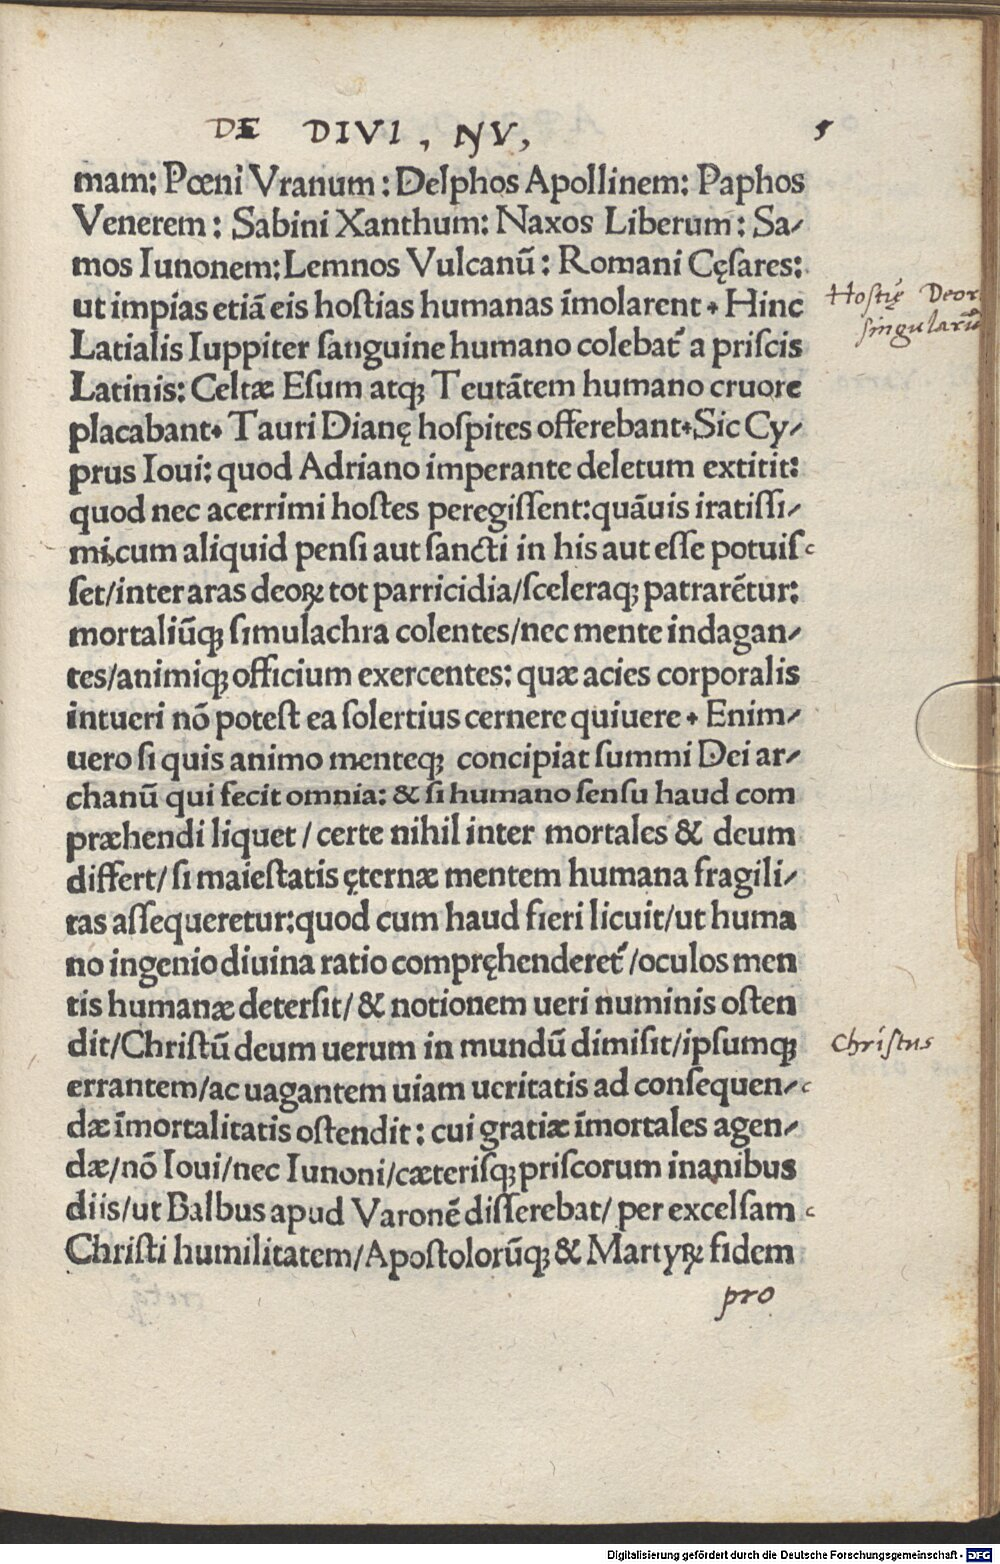 DE DIVI, NV, 5
mam: Pœni Vranum: Delphos Apollinem: Paphos
Venerem: Sabini Xanthum: Naxos Liberum: Sa/
mos Iunonem: Lemnos Vulcanū: Romani Cęſares:
ut impias etiā eis hoſtias humanas īmolarent. Hinc
Hoſtię Deor
ſingulariū
Latialis Iuppiter ſanguine humano colebat᷑ a priſcis
Latinis: Celtæ Eſum atqꝫ Teutātem humano cruore
placabant. Tauri Dianę hoſpites offerebant. Sic Cy/
prus Ioui: quod Adriano imperante deletum extitit:
quod nec acerrimi hoſtes peregiſſent: quāuis iratiſſi/
mi, cum aliquid penſi aut ſancti in his aut eſſe potuiſ
ſet/inter aras deoꝝ tot parricidia/ſceleraqꝫ patrarētur:
mortaliūqꝫ ſimulachra colentes/nec mente indagan/
tes/animiqꝫ officium exercentes: quæ acies corporalis
intueri nō poteſt ea ſolertius cernere quiuere. Enim/
uero ſi quis animo menteqꝫ concipiat ſummi Dei ar/
chanū qui fecit omnia: & ſi humano ſenſu haud com
præhendi liquet/ certe nihil inter mortales & deum
differt/ ſi maieſtatis ęternæ mentem humana fragili/
tas aſſequeretur: quod cum haud fieri licuit/ut huma
no ingenio diuina ratio compręhenderet᷑/oculos men
tis humanæ deterſit/ & notionem ueri numinis oſten
dit/Chriſtū deum uerum in mundū dimiſit/ipſumqꝫ
Chriſtus
errantem/ac uagantem uiam ueritatis ad conſequen/
dæ īmortalitatis oſtendit: cui gratiæ īmortales agen/
dæ/nō Ioui/nec Iunoni/cæteriſqꝫ priſcorum inanibus
diis/ut Balbus apud Varonē diſſerebat/ per excelſam
Chriſti humilitatem/Apoſtolorūqꝫ & Martyꝝ fidem
pro
Digitalisierung gefördert durch die Deutsche Forschungsgemeinschaft - DFG